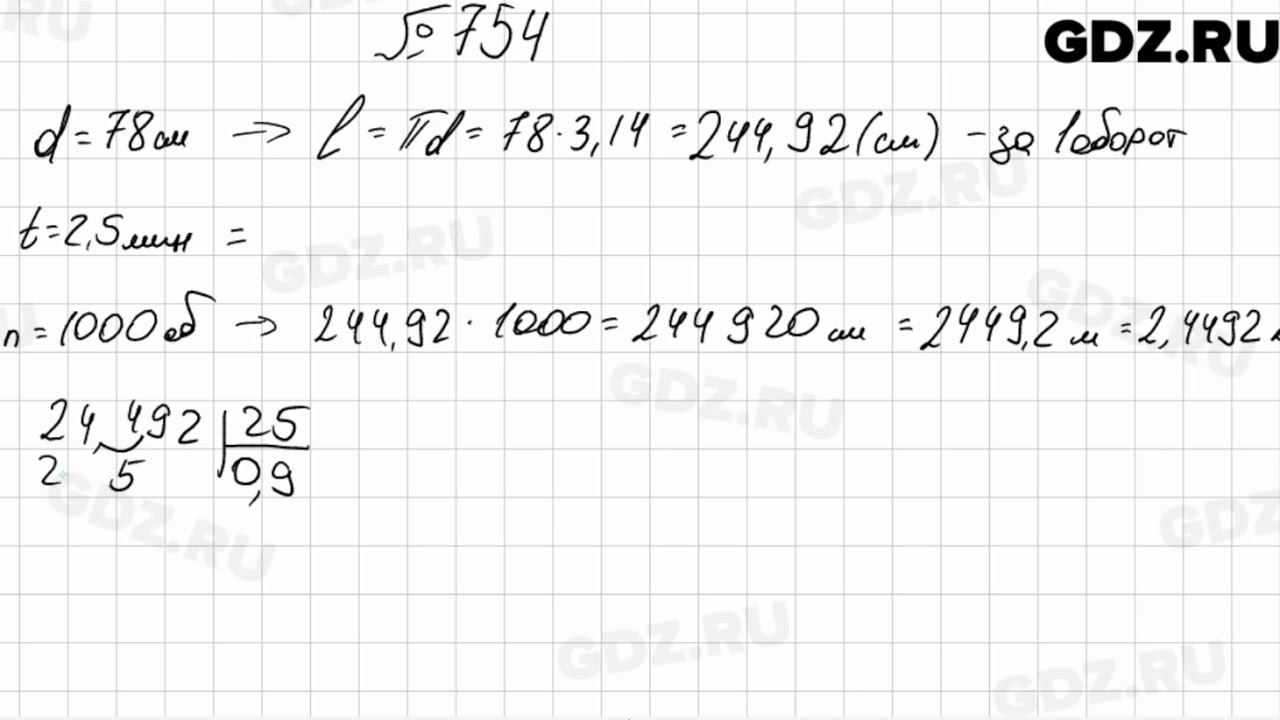 № 754
GDZ.RU
d = 78 см → l = πd = 78 · 3,14 = 244,92 (см) - за 1 оборот
t = 2,5 мин =
n = 1000 об → 244,92 · 1000 = 244 920 см = 2449,2 м = 2,4492
24,492 25
2 5 0,9
GDZ.RU
GDZ.RU
GDZ.RU
GDZ.RU
GDZ.RU
GDZ.RU
GDZ.RU